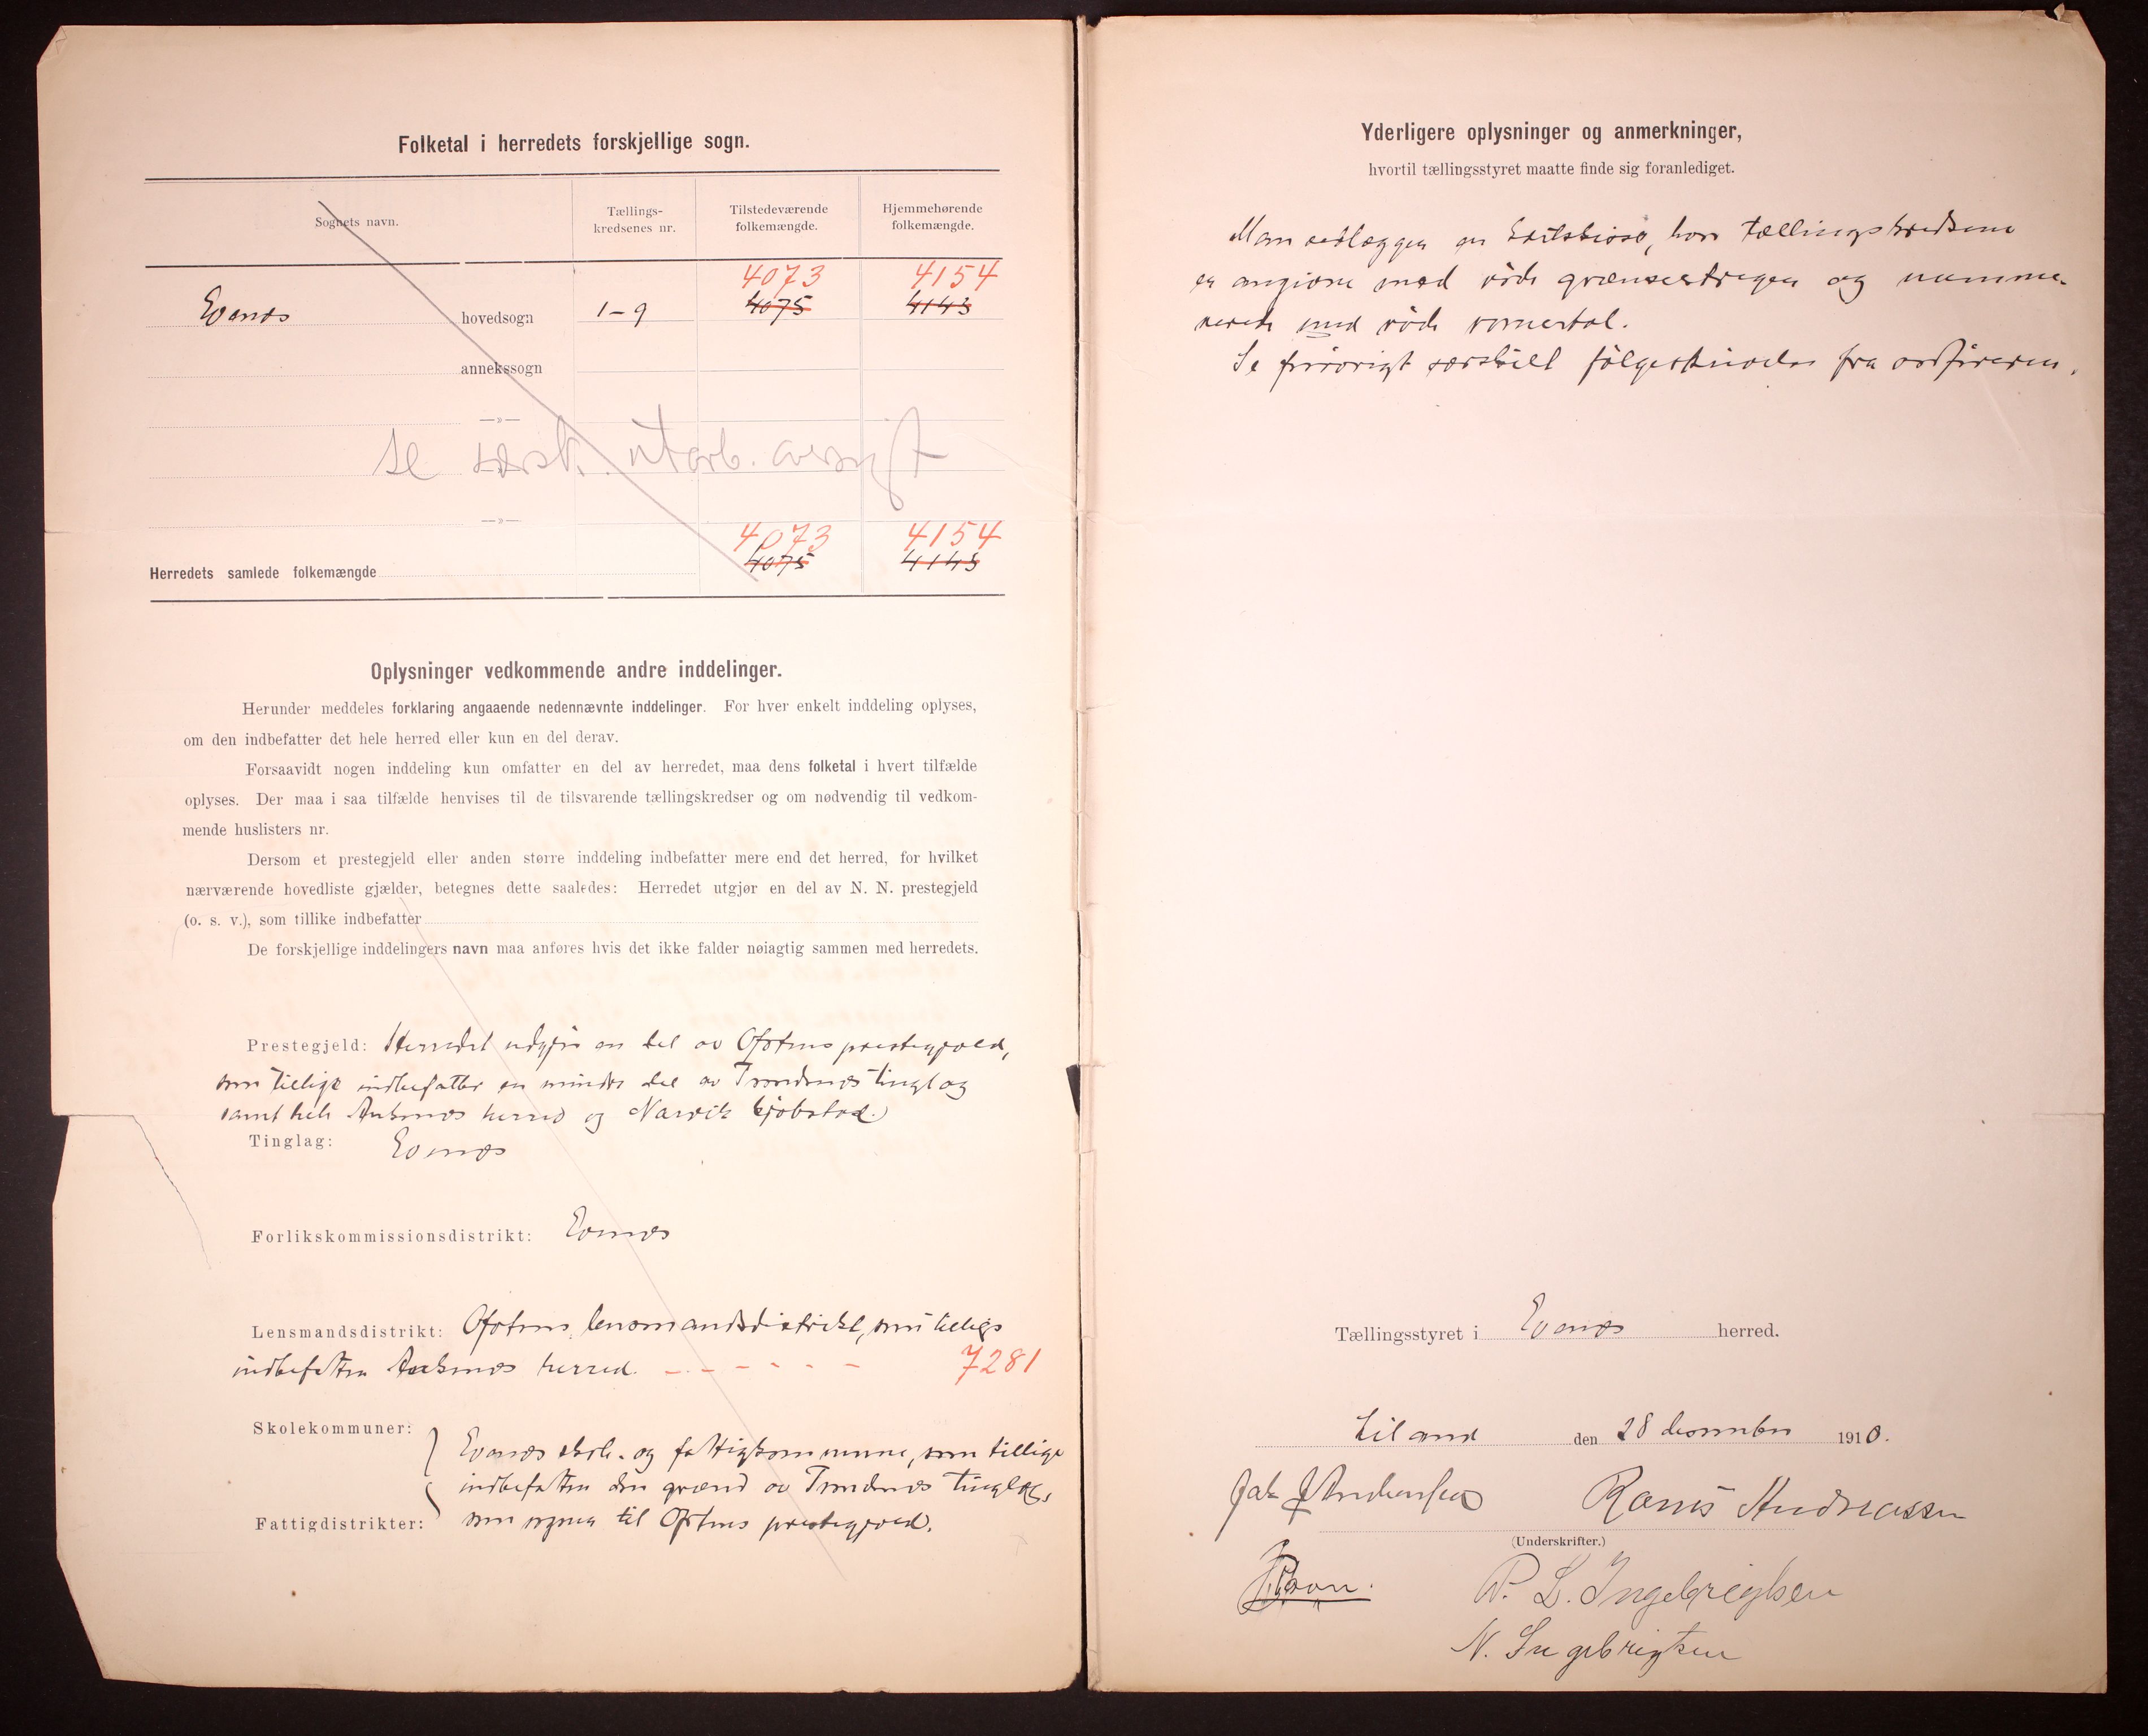 Folketal i herredets forskjellige sogn.
Sognets navn.
Tællings-
kredsenes nr.
Tilstedeværende
folkemængde.
Hjemmehørende
folkemængde.
4073 4154
Evenæs hovedsogn 1-9 4075 4143
annekssogn
—»—
se særsk. utarb. oversigt
—»—
4073 4154
Herredets samlede folkemængde 4075 4143
Oplysninger vedkommende andre inddelinger.
Herunder meddeles forklaring angaaende nedennævnte inddelinger. For hver enkelt inddeling oplyses,
om den indbefatter det hele herred eller kun en del derav.
Forsaavidt nogen inddeling kun omfatter en del av herredet, maa dens folketal i hvert tilfælde
oplyses. Der maa i saa tilfælde henvises til de tilsvarende tællingskredser og om nødvendig til vedkom-
mende huslisters nr.
Dersom et prestegjeld eller anden større inddeling indbefatter mere end det herred, for hvilket
nærværende hovedliste gjælder, betegnes dette saaledes: Herredet utgjør en del av N. N. prestegjeld
(o. s. v.), som tillike indbefatter
De forskjellige inddelingers navn maa anføres hvis det ikke falder nøiagtig sammen med herredets.
Prestegjeld: Herredet udgjør en del av Ofotens prestegjeld,
som tillige indbefatter en mindre del av Trondenes tinglag
samt hele Ankenes herred og Narvik kjøbstad.
Tinglag: Evenæs
Forlikskommissionsdistrikt: Evenæs
Lensmandsdistrikt: Ofotens lensmandsdistrikt, som tillige
indbefatter Ankenes herred. - - - - - - 7281
Skolekommuner:
Evenæs skole- og fattigkommune, som tillige
indbefatter den grænd av Trondenes tinglag,
Fattigdistrikter: som sogner til Ofotens prestegjeld.
Yderligere oplysninger og anmerkninger,
hvortil tællingsstyret maatte finde sig foranlediget.
Man vedlægger en kartskisse, hvor tællingskredsene
er angivne med røde grænsestreger og numme-
rerede med røde romertal.
Se forøvrigt særskilt følgeskrivelse fra ordføreren.
Tællingsstyret i Evenæs herred.
Liland den 28 december 1910.
Rasmus Andreassen
(Underskrifter.)
P. L. Ingebrigtsen
N. Ingebrigtsen